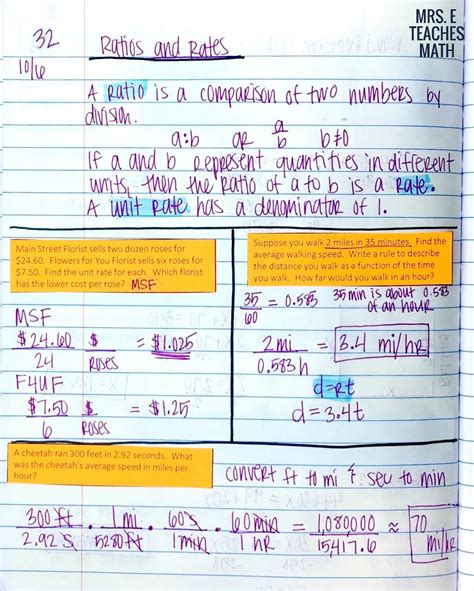 MRS. E
TEACHES
MATH
32
10/6
Ratios and Rates
A Ratio is a comparison of two numbers by
division.
a:b OR a/b b≠0
If a and b represent quantities in different
units, then the Ratio of a to b is a Rate.
A unit Rate has a denominator of 1.
Main Street Florist sells two dozen roses for
$24.60. Flowers for You Florist sells six roses for
$7.50. Find the unit rate for each. Which florist
has the lower cost per rose? MSF
MSF
$24.60 $ = $1.025
24 Roses
F4UF
$7.50 $ = $1.25
6 Roses
Suppose you walk 2 miles in 35 minutes. Find the
average walking speed. Write a rule to describe
the distance you walk as a function of the time
you walk. How far would you walk in an hour?
35/60 = 0.583 35 min is about 0.583
of an hour
2mi = 3.4 mi/hR
0.583h
d=Rt
d=3.4t
A cheetah ran 300 feet in 2.92 seconds. What
was the cheetah's average speed in miles per
hour?
convert ft to mi & sec to min
300 ft · 1mi · 60s · 60min = 1,080,000 ≈ 70
2.92 s 5280ft 1min 1 hR 15417.6 mi/hR